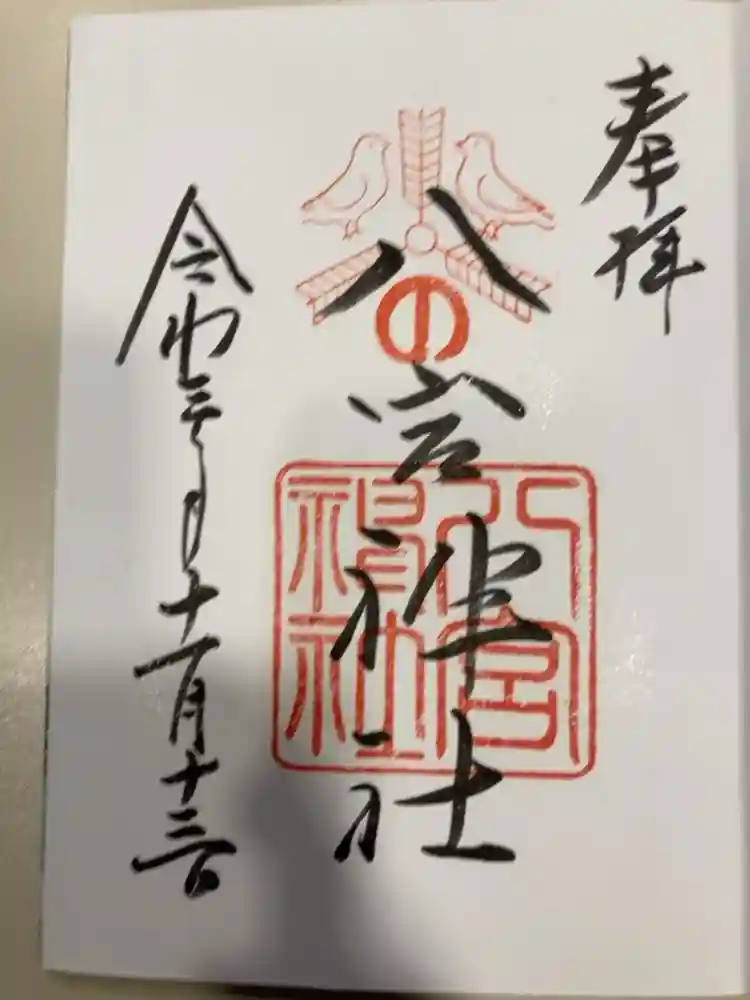 奉拝
八宮神社
八宮
神社
令和三年十一月十三日